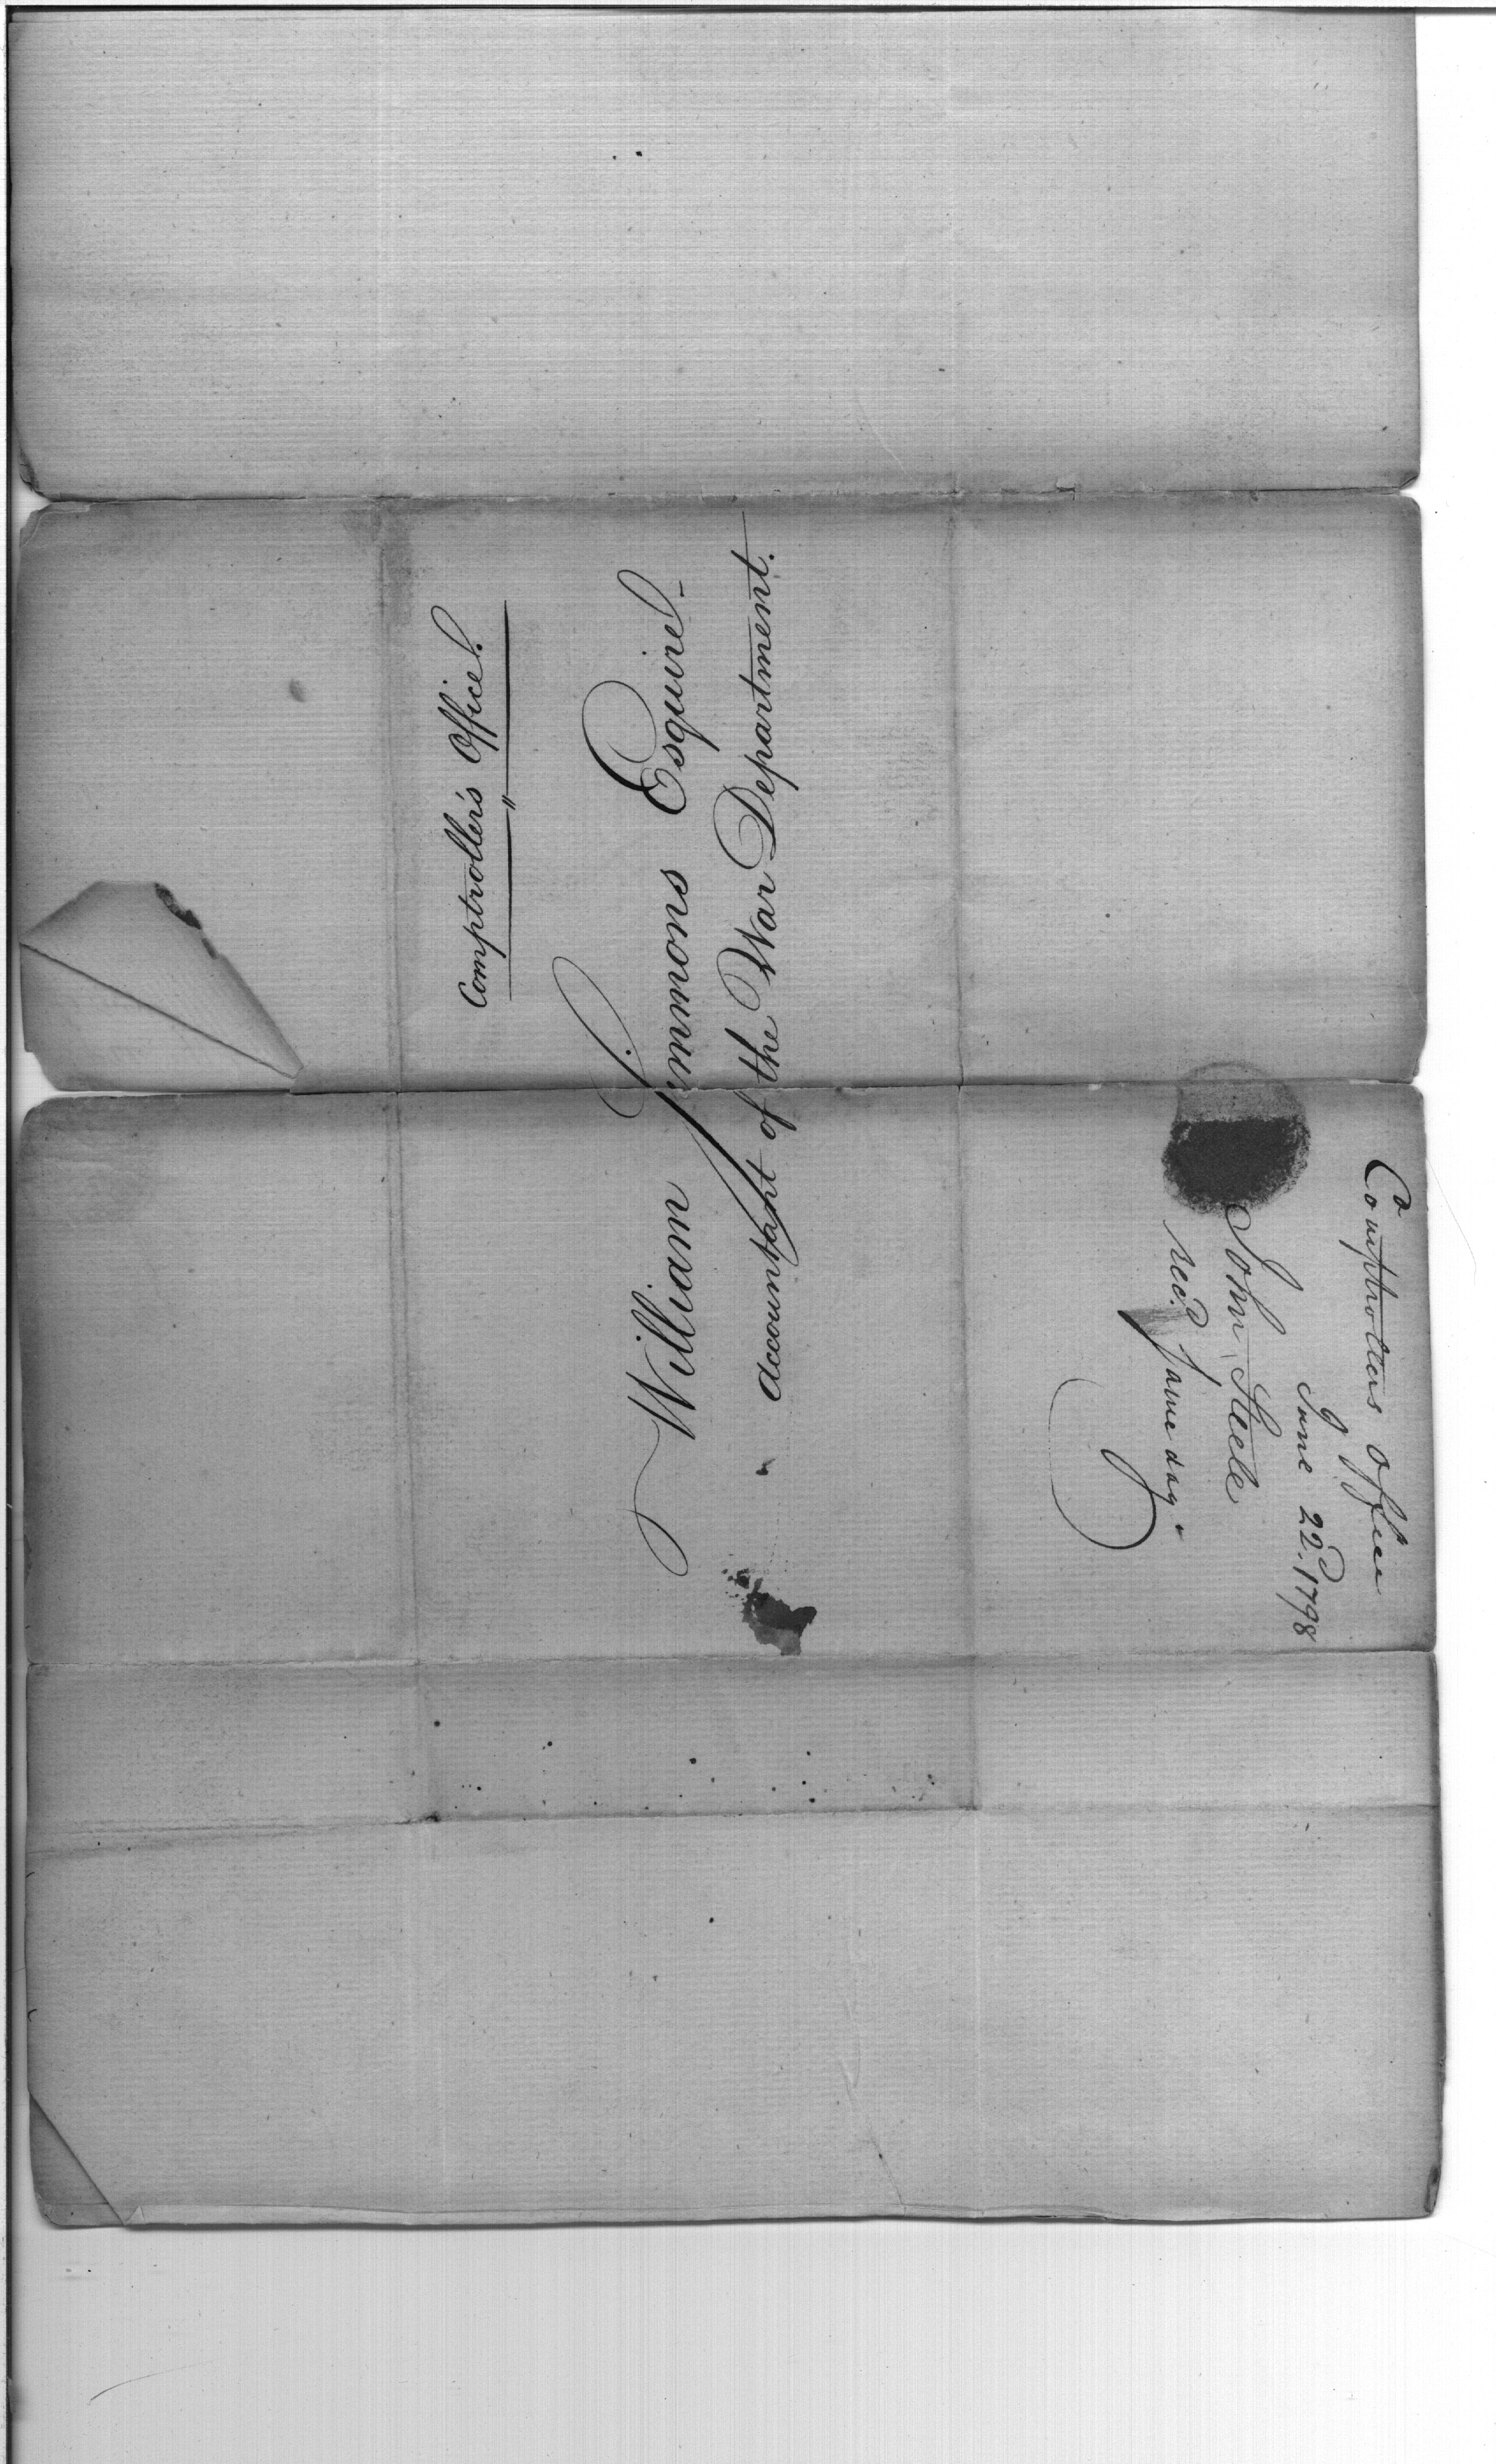 Comptroller's Office.
William Simmons Esquire
Accountant of the War Department.
Comptrollers Office
June 22d. 1798
John Steele
recd. same day.